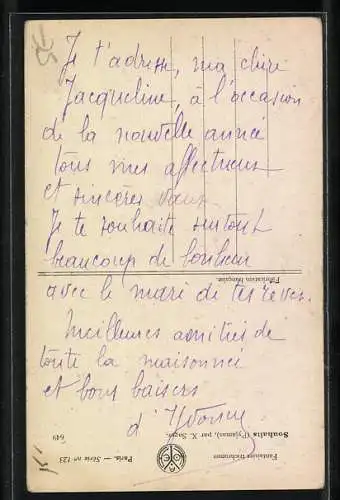 Je t'adresse, ma chère
Jacqueline, à l'occasion
de la nouvelle année
tous mes affectueux
et sincères vœux
Je te souhaite surtout
beaucoup de bonheur
Fabrication française.
avec le mari de tes rêves.
Meilleures amitiés de
toute la maisonnée
et bons baisers
d'Yvonne
Fantaisies trichromes
Souhaits (Pyjamas), par X. Sager.
Paris. — Série nº 123
649